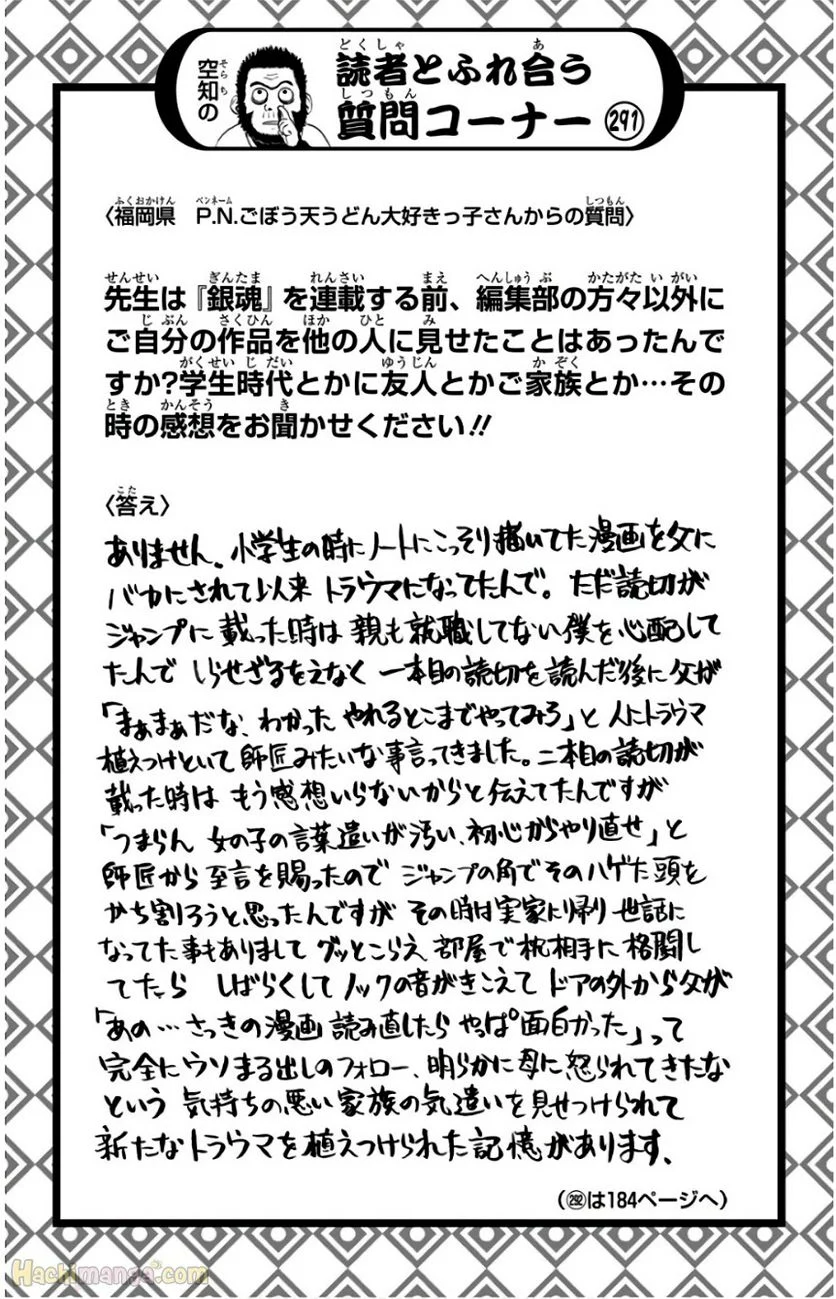 空知の
読者とふれ合う
質問コーナー 291
〈福岡県 P.N.ごぼう天うどん大好きっ子さんからの質問〉
先生は『銀魂』を連載する前、編集部の方々以外に
ご自分の作品を他の人に見せたことはあったんで
すか?学生時代とかに友人とかご家族とか…その
時の感想をお聞かせください!!
〈答え〉
ありません。小学生の時にノートにこっそり描いてた漫画を父に
バカにされて以来 トラウマになってたんで。ただ読切が
ジャンプに載った時は 親も就職してない僕を心配して
たんで しらせざるをえなく 一本目の読切を読んだ後に父が
「まぁまぁだな、わかった やれるとこまでやってみろ」と 人にトラウマ
植えつけといて師匠みたいな事言ってきました。二本目の読切が
載った時は もう感想いらないからと伝えてたんですが
「つまらん 女の子の言葉遣いが汚い、初心からやり直せ」と
師匠から 至言を賜ったので ジャンプの角でそのハゲた頭を
かち割ろうと思ったんですが その時は実家に帰り 世話に
なってた事もありまして グッとこらえ 部屋で枕相手に格闘し
てたら しばらくして ノックの音がきこえて ドアの外から父が
「あの…さっきの漫画 読み直したら やっぱ面白かった」って
完全にウソまる出しのフォロー、明らかに母に怒られてきたな
という 気持ちの悪い家族の気遣いを見せつけられて
新たなトラウマを植えつけられた記憶があります、
(292は184ページへ)
Hachimanga.com